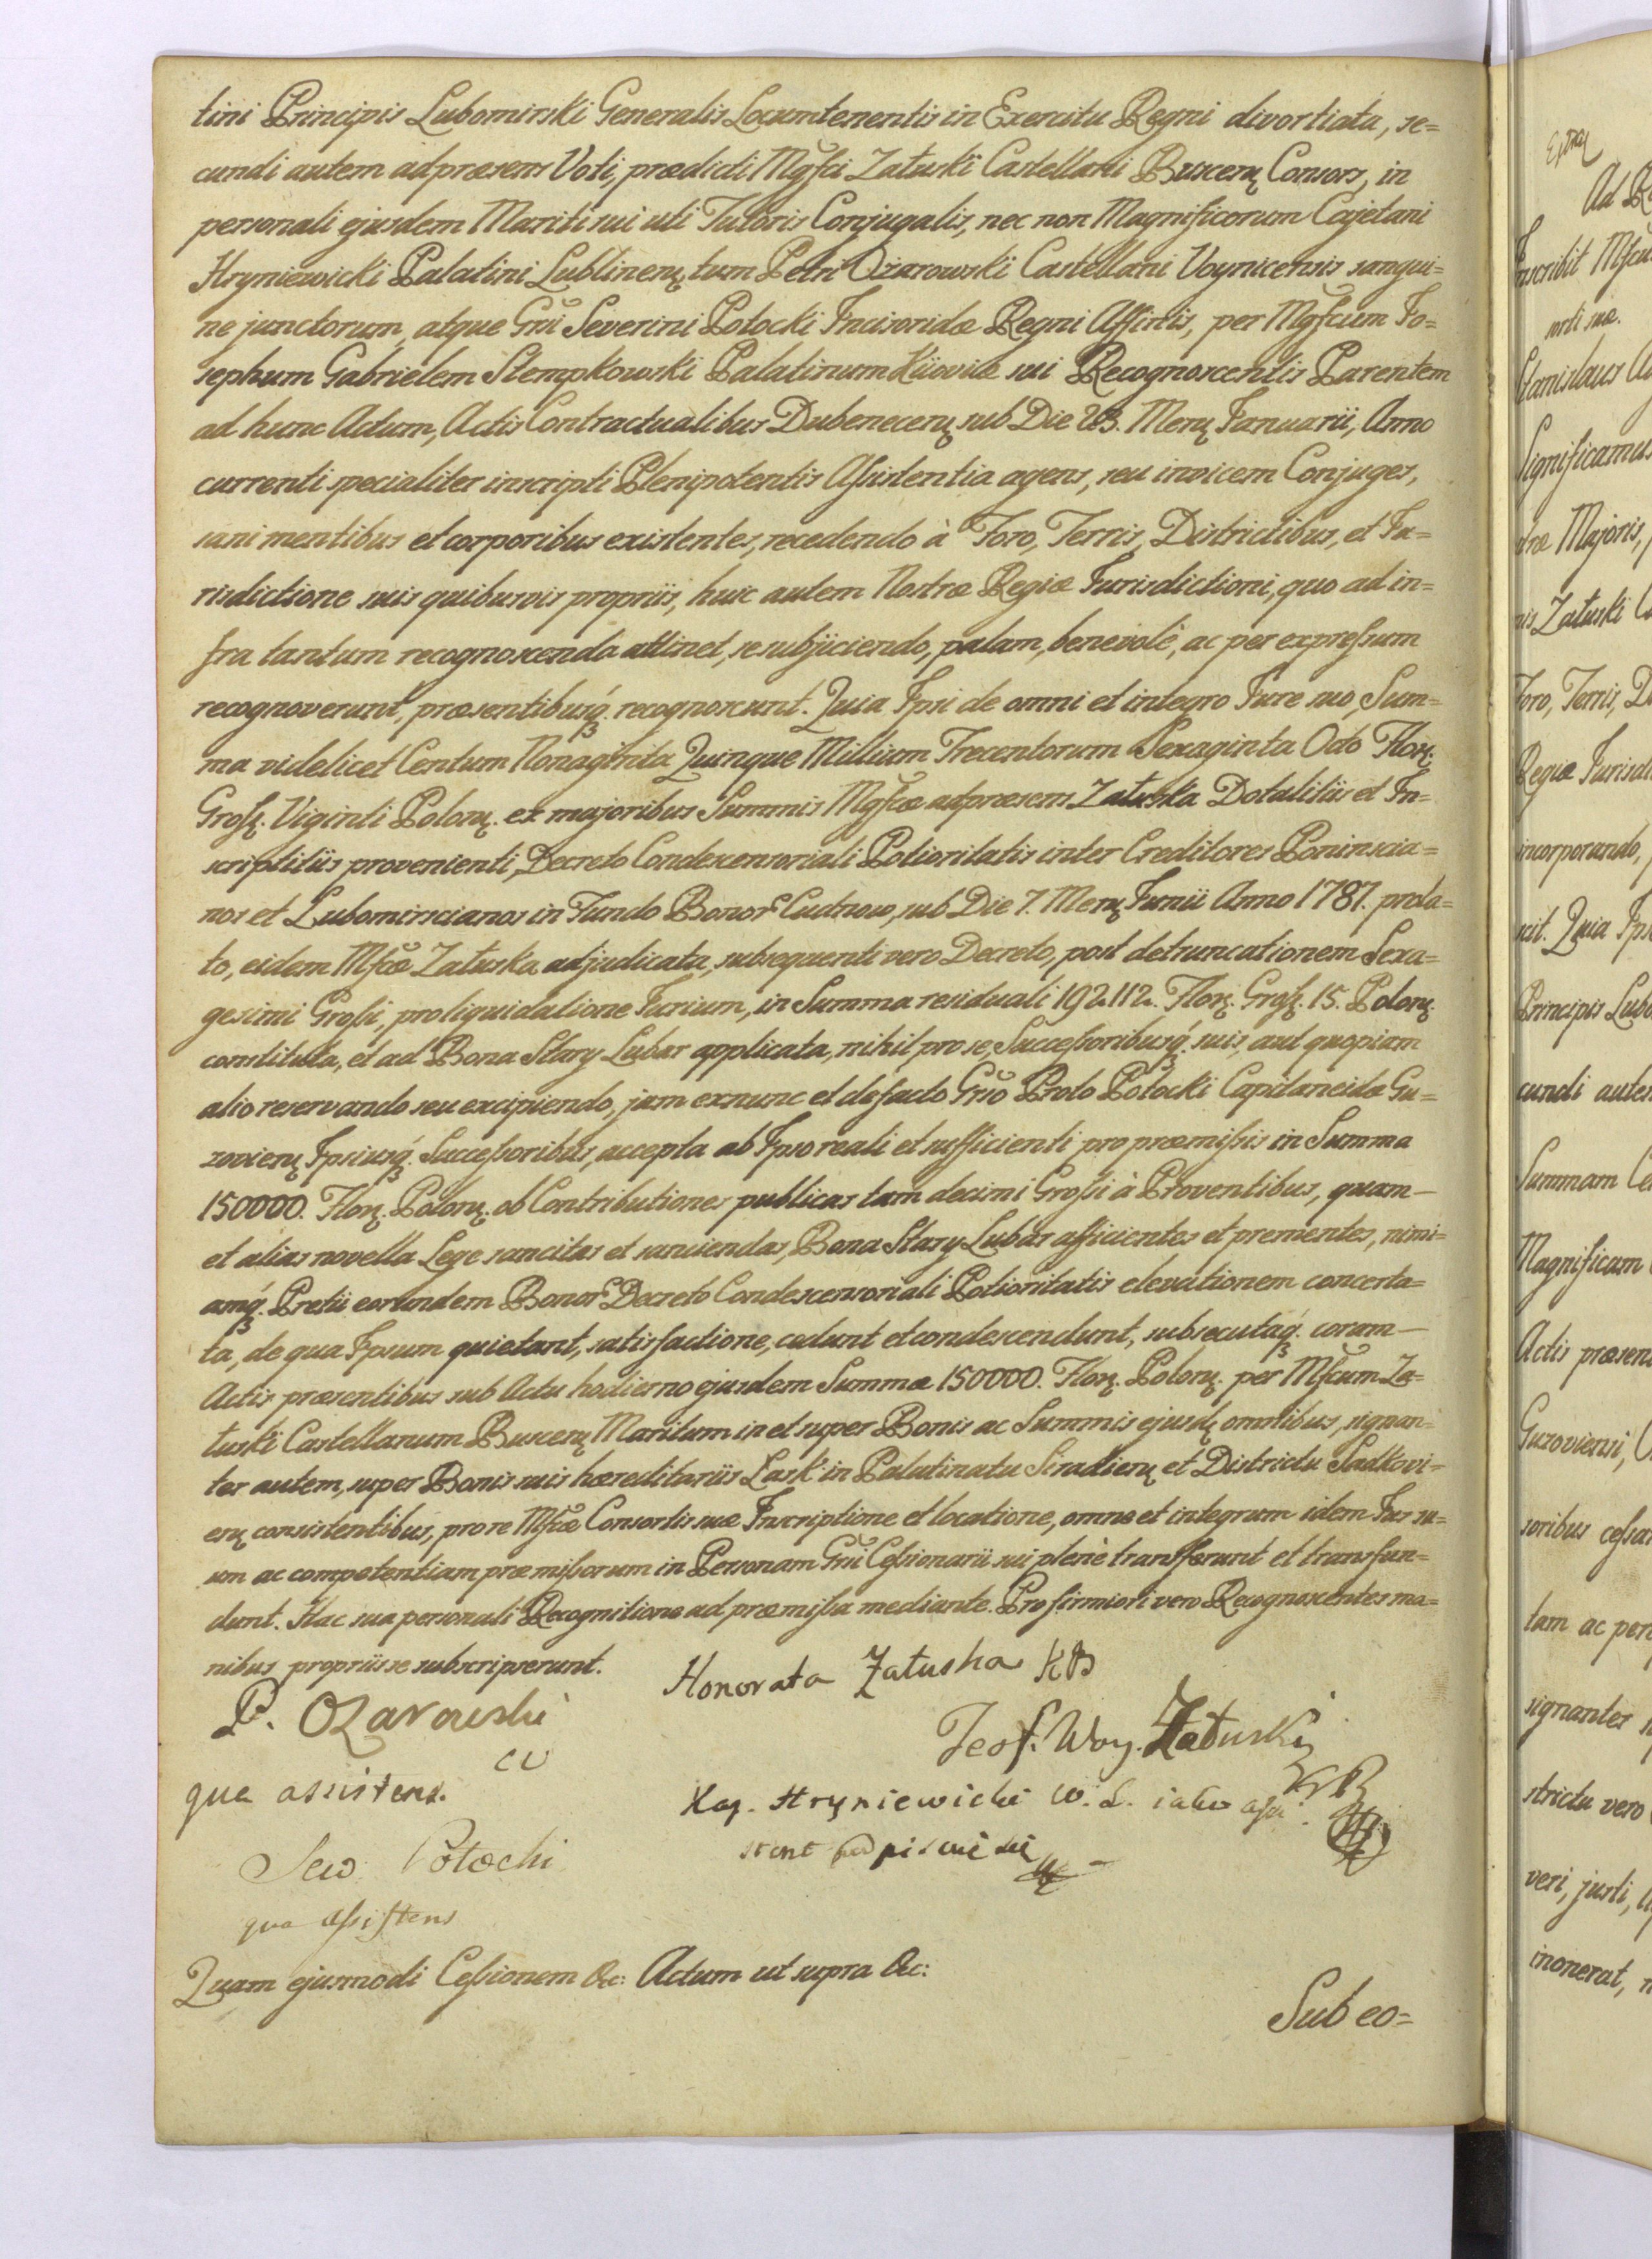 tini Principis Lubomirski Generalis Locumtenentis in Exercitu Regni divortiata, se=
cundi autem ad præsens Voti, prædicti Mgfci Załuski Castellani Buscen̄ Consors, in
personali ejusdem Mariti sui uti Tutoris Conjugalis, nec non Magnificorum Cajetani
Hryniewicki Palatini Lublinen̄, tum Petri Ożarowski Castellani Voynicensis sangui=
ne junctorum, atque Grsi Severini Potocki Incisoridæ Regni Affinis, per Mgfcum Jo=
sephum Gabrielem Stempkowski Palatinum Kijoviæ sui Recognoscentis Parentem
ad hunc Actum, Actis Contractualibus Dubenecen̄ sub Die 23. Mens̄ Januarii, Anno
currenti specialiter inscripti Plenipotentis Assistentia agens, seu invicem Conjuges,
sani mentibus et corporibus existentes, recedendo à Foro, Terris, Districtibus, et Ju=
risdictione suis quibusvis propriis, huic autem Nostræ Regiæ Jurisdictioni, quo ad in=
fra tantum recognoscenda attinet, se subjiciendo, palam, benevolè, ac per expressum
recognoverunt, præsentibusq́. recognoscunt. Quia Ipsi de omni et integro Jure suo, Sum=
ma videlicet Centum Nonaginta Quinque Millium Trecentorum Sexaginta Octo Flor̄.
Gross̄. Viginti Polon̄. ex majoribus Summis Mgfcæ ad præsens Załuska Dotalitiis et In=
scriptitiis provenienti, Decreto Condescensoriali Potioritatis inter Creditores Poninscia=
nos et Lubomirscianos in Fundo Bonor̄ Cudnow, sub Die 7. Mens̄ Junii Anno 1787. prola=
to, eidem Mfcæ Załuska adjudicata, subsequenti vero Decreto, post detruncationem Sexa=
gesimi Grossi, pro liquidatione Jurium, in Summa residuali 192112. Flor̄. Gross̄. 15. Polon̄.
constituta, et ad Bona Stary Lubar applicata, nihil pro se, Successoribusq́. suis, aut quopiam
alio reservando seu excipiendo, jam exnunc et defacto Grso Proto Potocki Capitaneidæ Gu=
zovien̄ Ipsiusq́. Successoribus, accepta ab Ipso reali et sufficienti pro præmissis in Summa
150000. Flor̄. Polon̄. ob Contributiones publicas tam decimi Grossi à Proventibus, quam—
et alias novella Lege sancitas et sanciendas, Bona Stary Lubar afficientes et prementes, nimi=
amq́. Pretii eorundem Bonor̄ Decreto Condescensoriali Potioritatis elevationem concerta=
ta, de qua Ipsum quietant, satisfactione, cedunt et condescendunt, subsecutaq́. coram—
Actis præsentibus sub Actu hodierno ejusdem Summæ 150000. Flor̄. Polon̄. per Mfcum Za=
łuski Castellanum Buscen̄ Maritum in et super Bonis ac Summis ejusd̄ omnibus, signan=
ter autem, super Bonis suis hæreditariis Łask in Palatinatu Siradien̄ et Districtu Szadkovi=
en̄ consistentibus, pro re Mfcæ Consortis suæ Inscriptione et locatione, omne et integrum idem Jus su=
um ac competentiam præmissorum in Personam Grsi Cessionarii sui plenè transferunt et transfun=
dunt. Hac sua personali Recognitione ad præmissa mediante. Pro firmiori vero Recognoscentes ma=
nibus propriis se subscripserunt.
Honorata Załuska KB
P. Ożarowski
CW
qua assistens.
Teof. Woy. Załuski
KB
Kaj. Hryniewicki W. L. iako assi
stent podpisuie sie
Sew. Potocki
qua assistens
Quam ejusmodi Cessionem &c: Actum ut supra &c:
Sub eo=